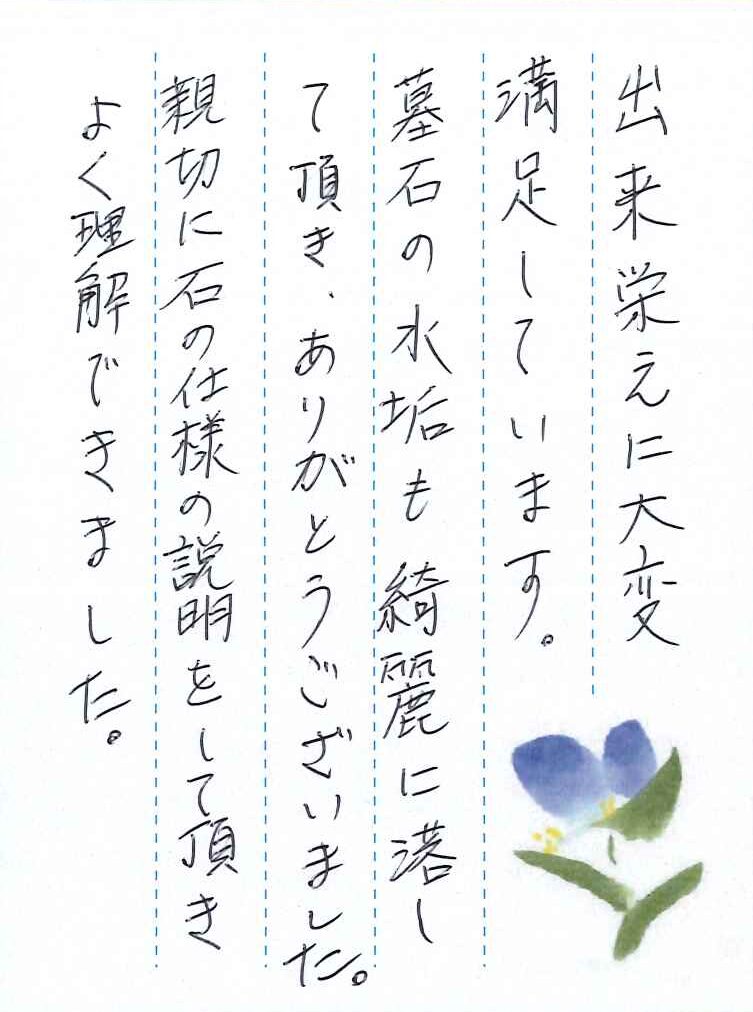 出来栄えに大変
満足しています。
墓石の水垢も綺麗に落し
て頂き、ありがとうございました。
親切に石の仕様の説明をして頂き
よく理解できました。